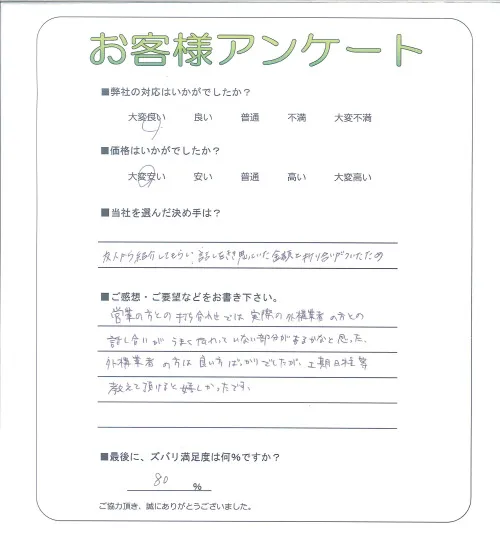 お客様アンケート
■弊社の対応はいかがでしたか？
大変良い 良い 普通 不満 大変不満
■価格はいかがでしたか？
大変安い 安い 普通 高い 大変高い
■当社を選んだ決め手は？
友人から紹介してもらい、話し合き思いた金額と折り合いがついたため
■ご感想・ご要望などをお書き下さい。
営業の方との打ち合わせでは実際の外構業者の方との
話し合いがうまく伝わっていない部分があるかなと思った。
外構業者の方は良い方ばっかりでしたが、工期日程等
教えて頂けると嬉しかったです。
■最後に、ズバリ満足度は何％ですか？
80 ％
ご協力頂き、誠にありがとうございました。